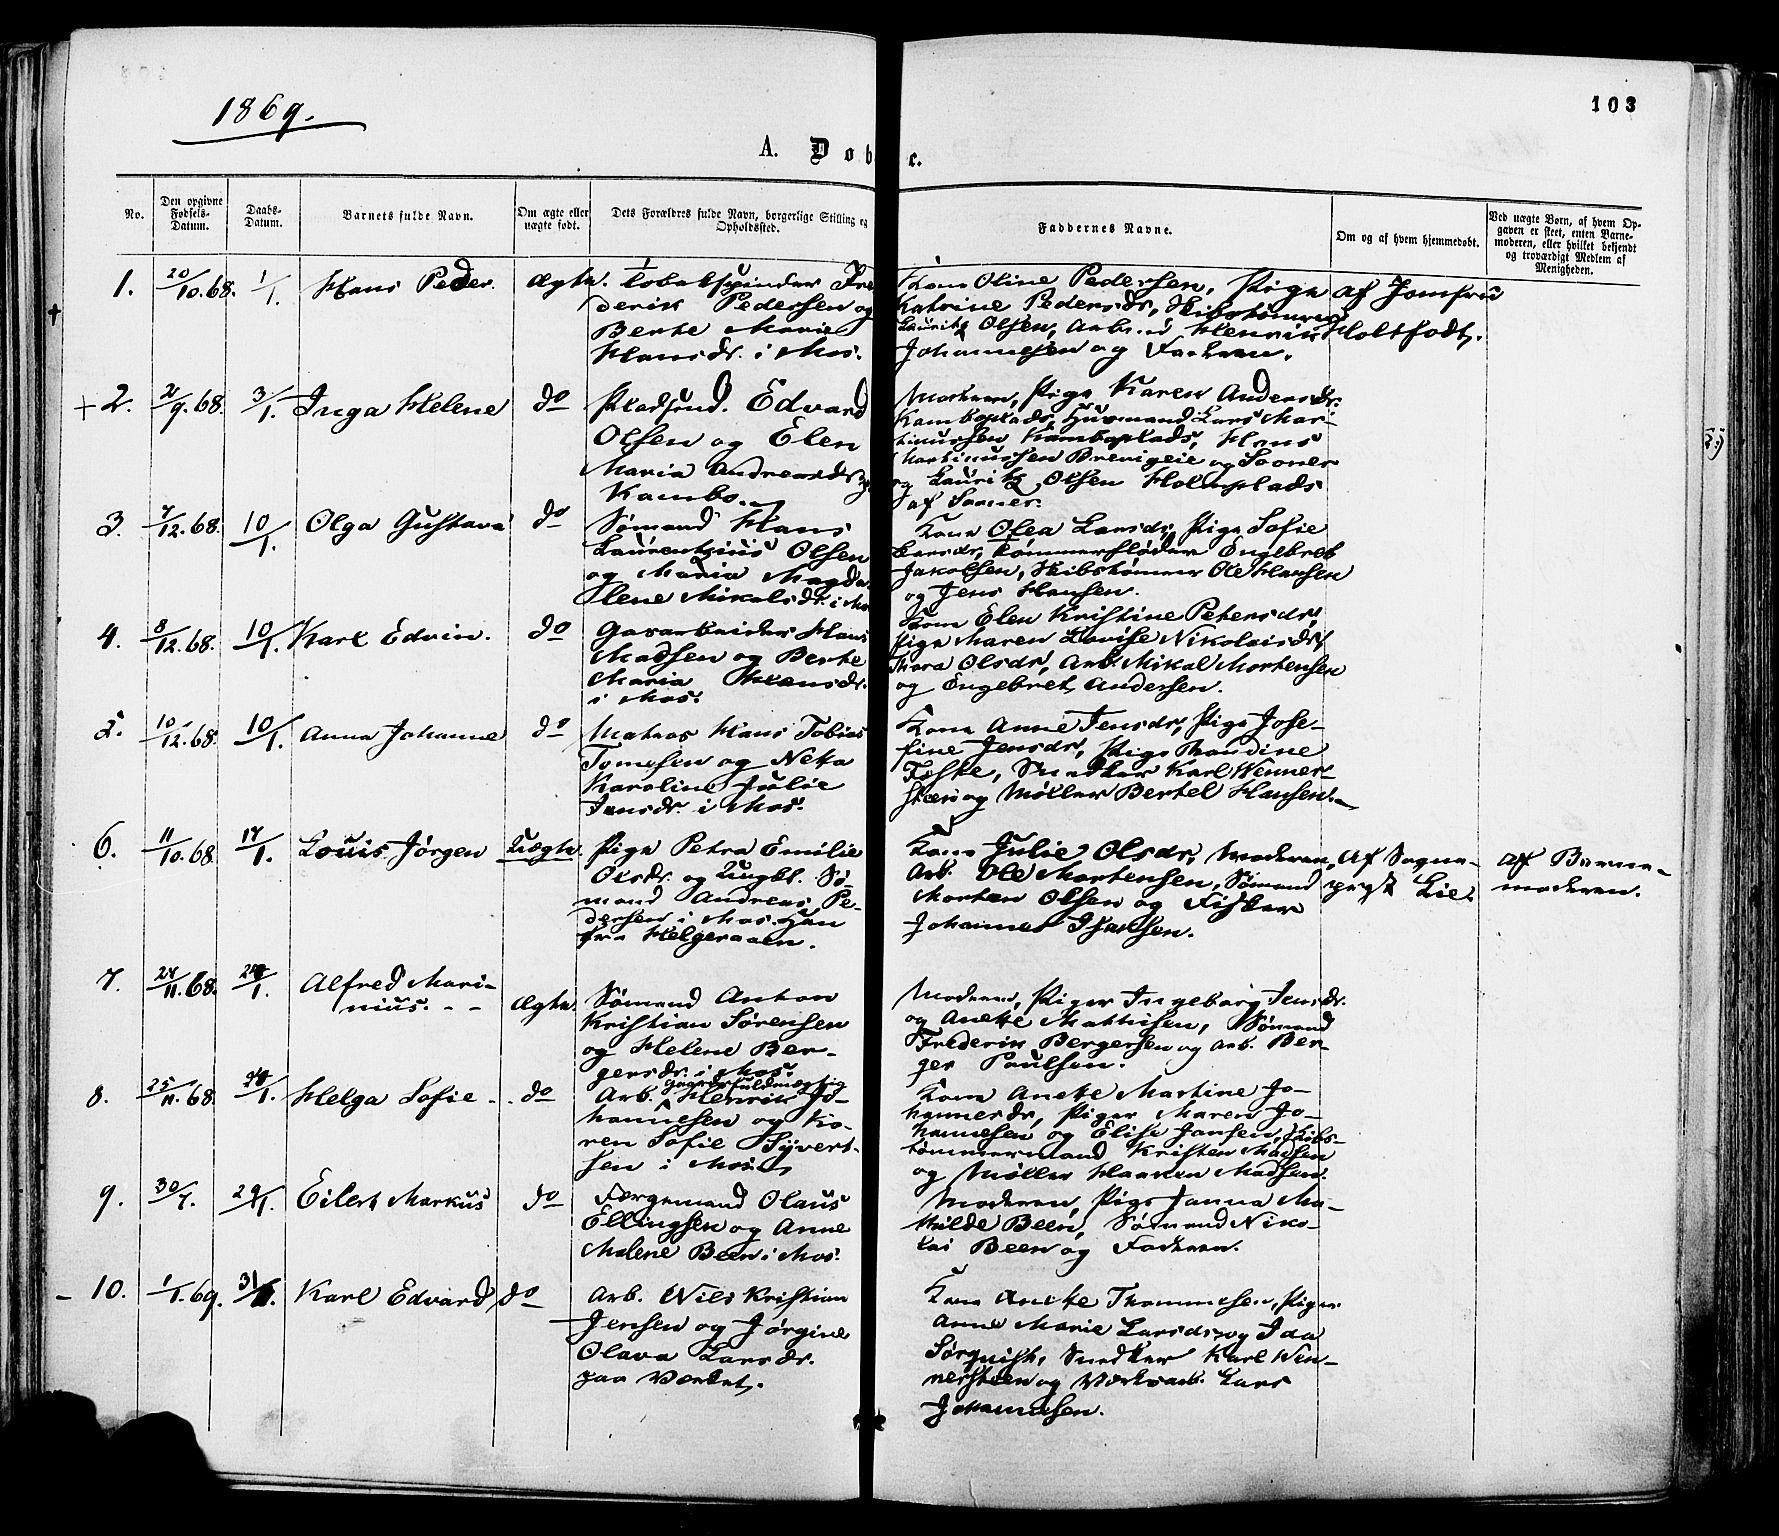 1869.
103
A. Døbte.
No.
Den opgivne Fødsels-Datum.
Daabs-Datum.
Barnets fulde Navn.
Om ægte eller uægte født.
Dets Forældres fulde Navn, borgerlige Stilling og Opholdssted.
Faddernes Navne.
Om og af hvem hjemmedøbt.
Ved uægte Børn, af hvem Opgaven er skeet, enten Barnemoderen, eller hvilket bekjendt og troværdigt Medlem af Menigheden.
1. 20/10.68. 1/1. Hans Peder. Ægte. Tobakspinder Fre
derik Pedersen og
Berte Marie
Hansdr. i Mos.
Kone Oline Pedersen, Pige
Katrine Pedersdr, Skibstømrer
Lauritz Olsen, Arb. Henrik
Johannesen og Faderen.
af Jomfru
Holtfodt.
+ 2. 2/9.68. 3/1. Inga Helene do Pladsmd. Edvard
Olsen og Elen
Maria Andreasdr
Kambo.
Moderen, Pige Karen Andersdr.
Kamboplads, Husmand Lars Mar-
tinussen Kamboplads, Hans
Martinussen Brevigeie og Sooner
og Lauritz Olsen Holmplads
af Sooner.
3. 7/12.68. 10/1. Olga Gustava do Sømand Hans
Laurentzius Olsen
og Maria Magda
lene Mikalsdr. i Mos
Kone Olea Larsdr, Pige Sofie
Larsdr, Tømmerfløder Engebret
Jakobsen, Skibstømmer Ole Hansen
og Jens Hansen.
4. 8/12.68. 10/1. Karl Edvin. do Gasarbeider Hans
Madsen og Berte
Maria Hansdr.
i Mos.
Kone Elen Kristine Petersdr,
Pige Maren Lovise Nikolaisdr,
Thora Olsdr, Arb. Mikal Mortensen
og Engebret Andersen.
5. 10/12.68. 10/1. Anna Johanne do Matros Hans Tobias
Tomesen og Neta
Karoline Julie
Jensdr. i Mos.
Kone Anne Jensdr, Pige Jose-
fine Jensdr, Pige Thondine
Feste, Snedker Karl Wenner-
steen og Møller Bertel Hansen.
6. 11/10.68. 17/1. Louis Jørgen Uægte. Pige Petra Emilie
Olsdr. og Ungkl. Sø
mand Andreas Pe-
dersen i Mos. Han
fra Helgeraaen.
Kone Julie Olsdr, Moderen,
Arb. Ole Mortensen, Sømand
Morten Olsen og Fisker
Johannes Isaksen.
Af Sogne-
prest Lie.
Af Barne-
moderen.
7. 24/11.68. 24/1. Alfred Mari-
nius. - - Ægte. Sømand Anton
Kristian Sørensen
og Helene Ber-
gersdr. i Mos.
Moderen, Piger Ingeborg Jensdr.
og Anette Mathisen, Sømand
Frederik Bergersen og Arb. Ber-
ger Paulsen.
8. 25/11.68. 24/1. Helga Sofie - . do Arb. Henrik Jo-
hannesen og Ka-
ren Sofie Syvert-
sen i Mos.
Kone Anette Martine Jo-
hannesdr, Piger Maren Jo-
hannesen og Elise Jansen, Skibs-
tømmermand Kristen Madsen
og Møller Hannen Madsen.
9. 30/7. 29/1. Eilert Markus do Færgemand Olaus
Ellingsen og Anne
Malene Been i Mos.
Moderen, Pige Janna Ma-
thilde Been, Sømand Niko-
lai Been og Faderen.
- 10. 1/1.69. 31/1. Karl Edvard, do Arb. Nils Kristian
Jensen og Jørgine
Olava Larsdr.
paa Værket.
Kone Anette Thommesen, Piger
Anne Marie Larsdr og Ida
Sørquist, Snedker Karl Wen-
nersteen og Værksarb. Lars
Johannesen.